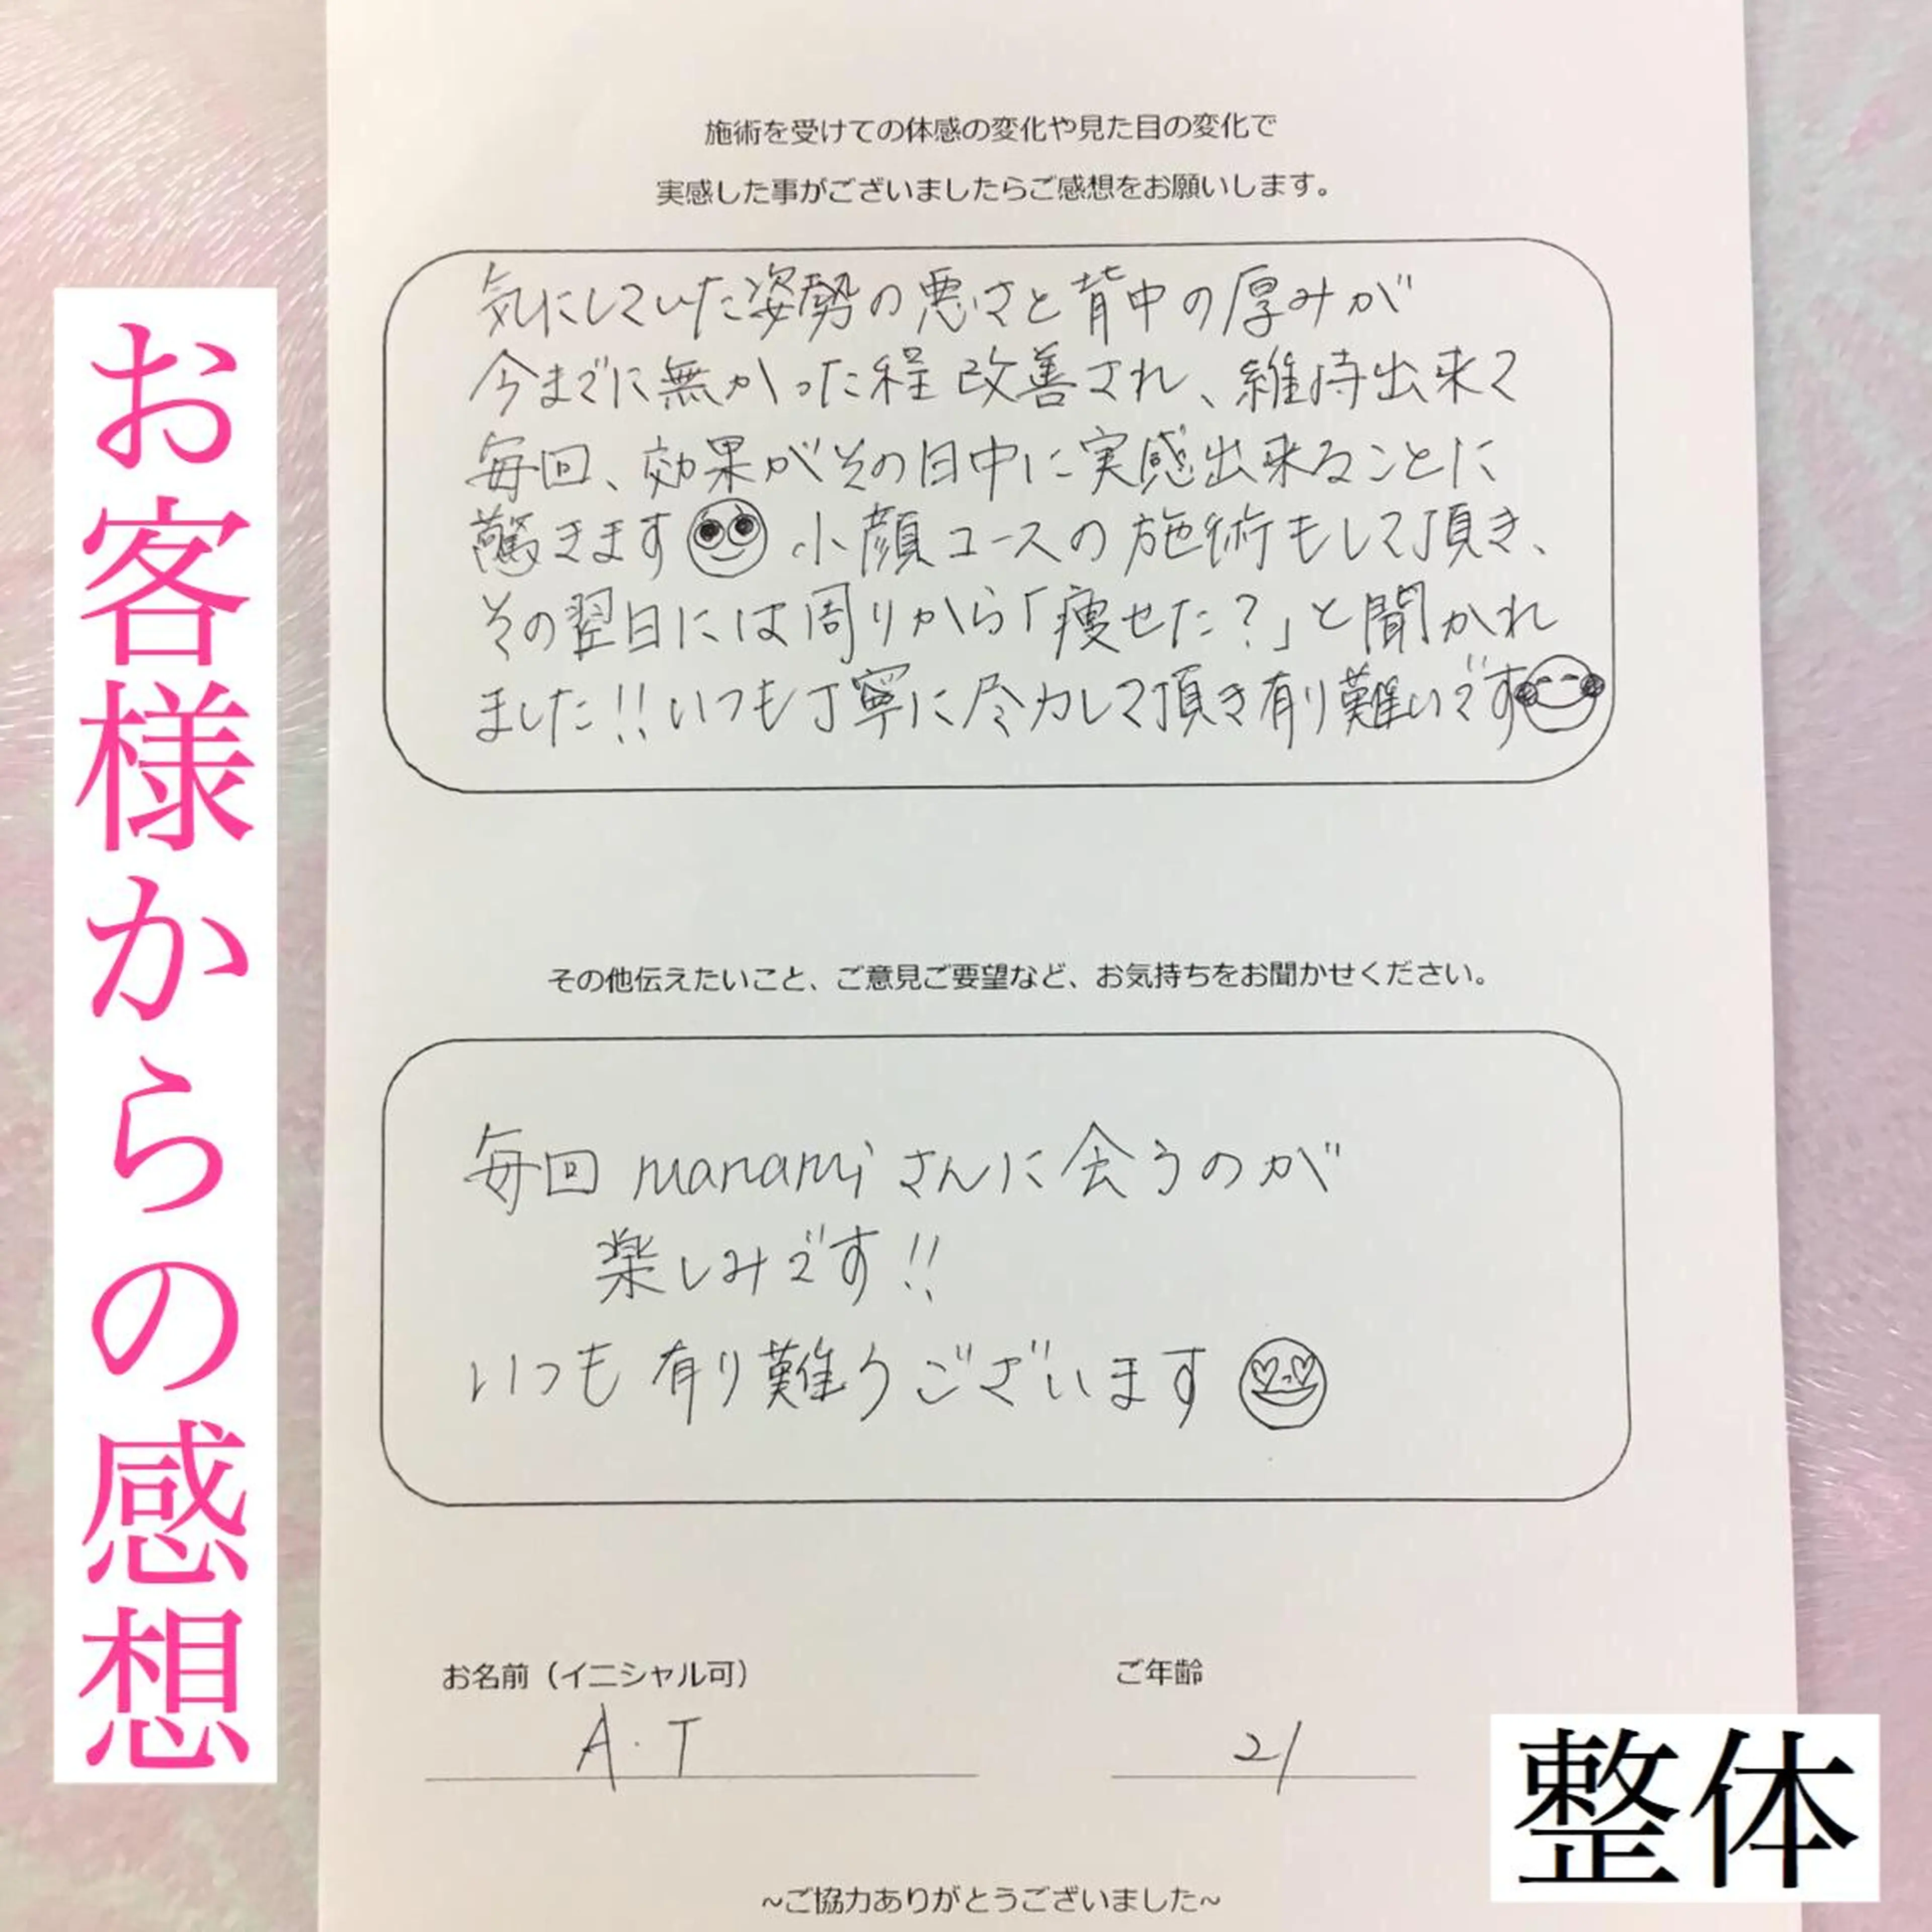 お客様からの感想
施術を受けての体感の変化や見た目の変化で
実感した事がございましたらご感想をお願いします。
気にしていた姿勢の悪さと背中の厚みが
今までに無かった程改善され、維持出来て
毎回、効果がその日中に実感出来ることに
驚きます 小顔コースの施術もして頂き、
その翌日には周りから「痩せた?」と聞かれ
ました!!いつも丁寧に尽力して頂き有り難いです
その他伝えたいこと、ご意見ご要望など、お気持ちをお聞かせください。
毎回 manamiさんに会うのが
楽しみです!!
いつも有り難うございます
お名前（イニシャル可）
ご年齢
A.T
21
整体
~ご協力ありがとうございました~